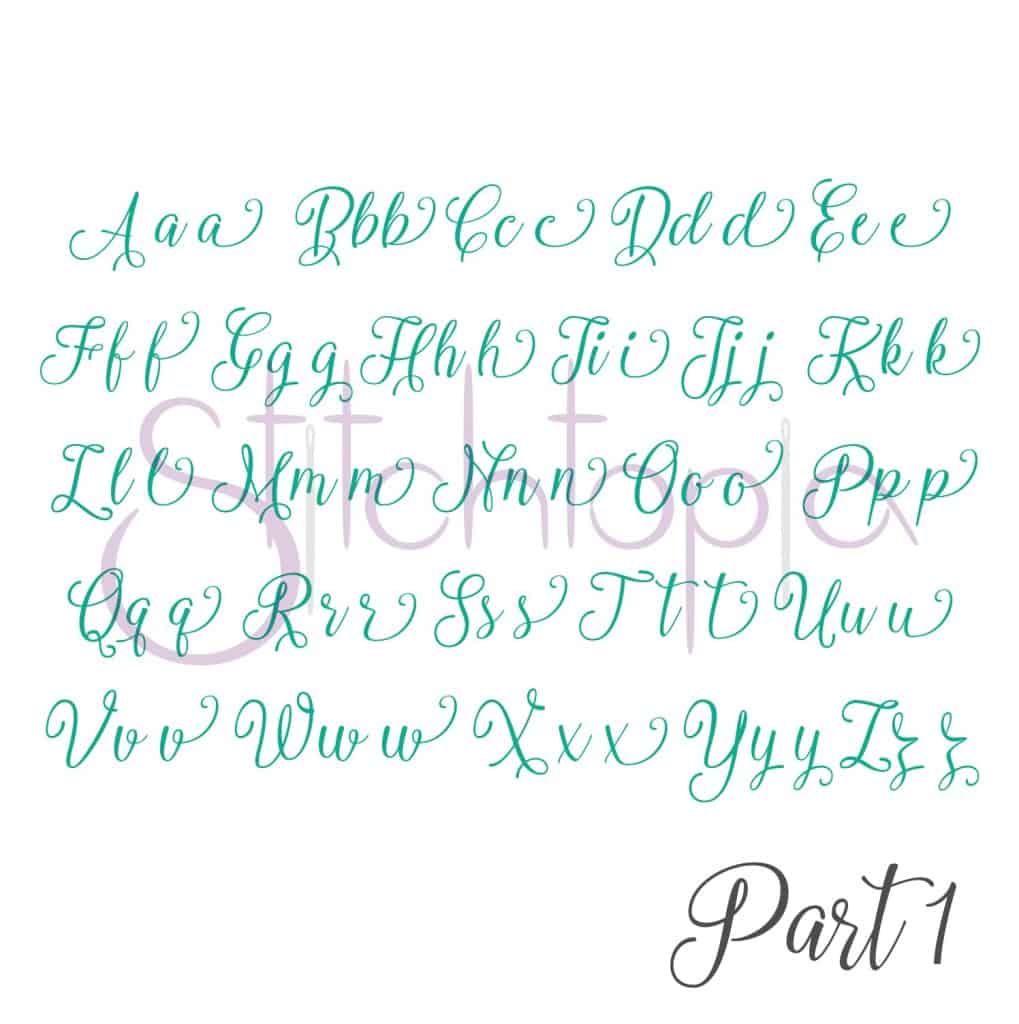 Aaa Bbb Ccc Ddd Eee
Fff Ggg Hhh Iii Jjj Kkk
Stitchtopia
Lll Mmm Nnn Ooo Ppp
Qqq Rrr Sss Ttt Uuu
Vvv Www Xxx Yyy Zzz
Part 1